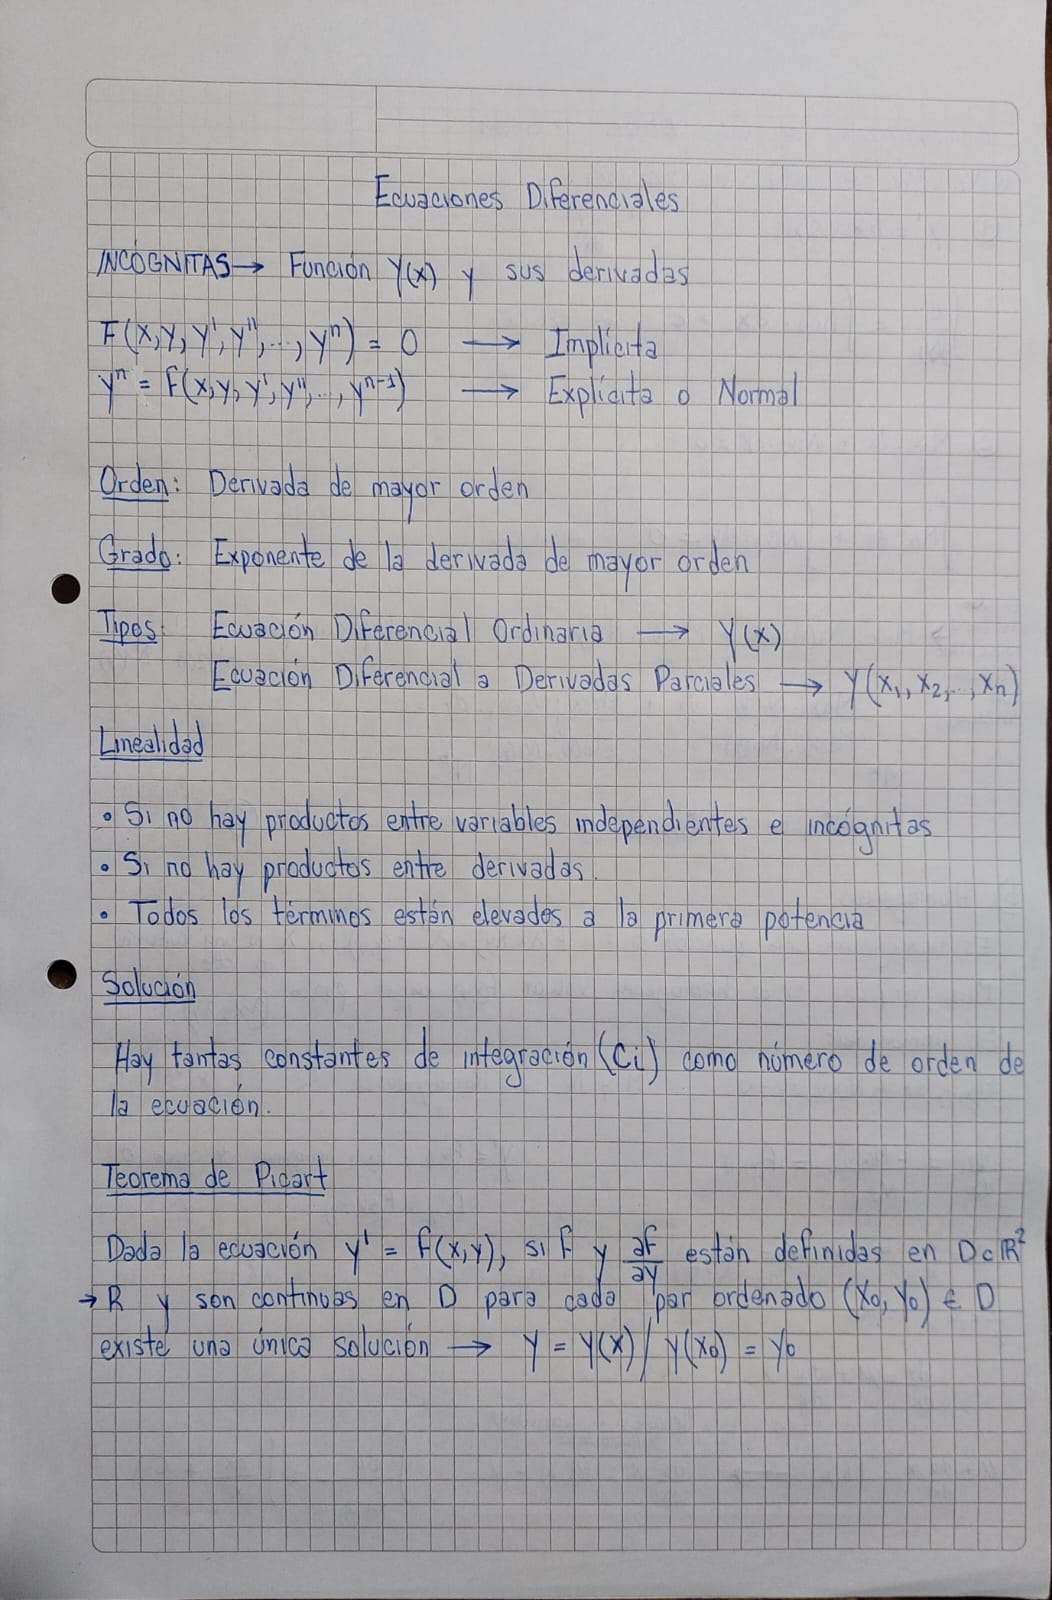 Ecuaciones Diferenciales
INCÓGNITAS → Función y(x) y sus derivadas
F(x, y, y', y'', ..., yⁿ) = 0 → Implícita
yⁿ = F(x, y, y', y'', ..., yⁿ⁻¹) → Explícita o Normal
Orden: Derivada de mayor orden
Grado: Exponente de la derivada de mayor orden
Tipos: Ecuación Diferencial Ordinaria → y(x)
Ecuación Diferencial a Derivadas Parciales → y(x₁, x₂, .., xn)
Linealidad
• Si no hay productos entre variables independientes e incógnitas
• Si no hay productos entre derivadas.
• Todos los términos están elevados a la primera potencia
Solución
Hay tantas constantes de integración (Ci) como número de orden de
la ecuación.
Teorema de Picart
Dada la ecuación y' = f(x,y), si f y ∂f/∂y están definidas en D⊂ℝ²
→ R y son continuas en D para cada par ordenado (x₀, y₀) ∈ D
existe una única solución → y = y(x) / y(x₀) = y₀